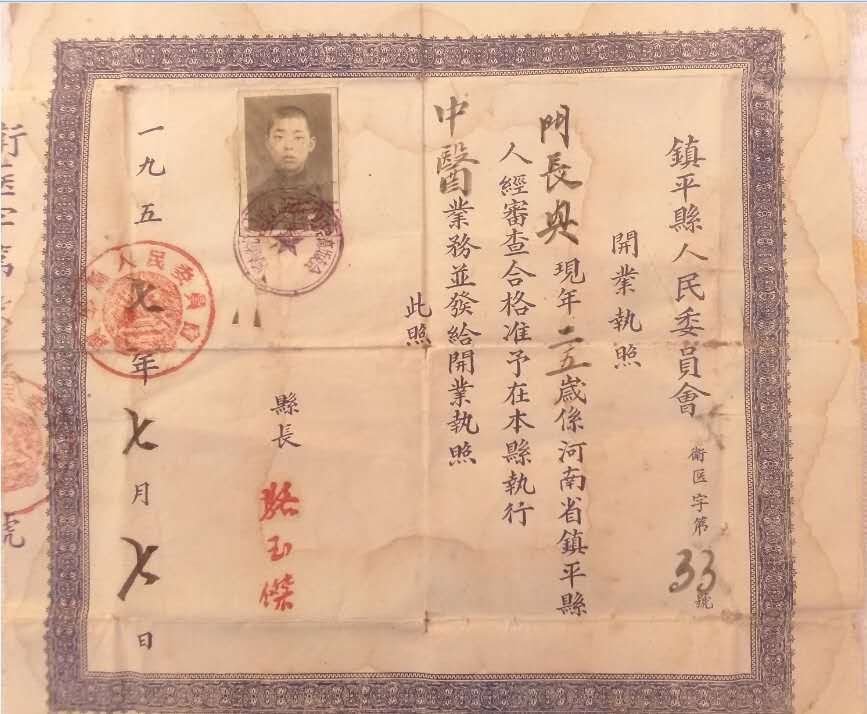 鎮平縣人民委員會
衛医字第33號
開業執照
門長典現年二五歲係河南省鎮平縣
人經審查合格准予在本縣執行
中醫業務並發給開業執照
此照
縣長
駱玉傑
一九五七年七月七日
人民委員
號